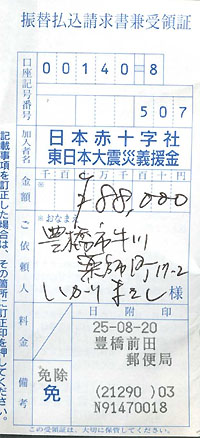 振替払込請求書兼受領証
口座記号番号
00140-8
507
加入者名
日本赤十字社
東日本大震災義援金
金額
千百十万千百十円
¥88,000
ご依頼人
※おなまえ
豊橋市牛川
薬師町17-2
いかりまさし様
料金
日附印
25-08-20
豊橋前田
郵便局
備考
免除
免
(21290 )03
N91470018
記載事項を訂正した場合は、その箇所に訂正印を押してください。
この受領証は、大切に保管してください。